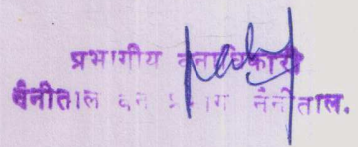 प्रभागीय वनाधिकारी
नैनीताल वन प्रभाग नैनीताल.